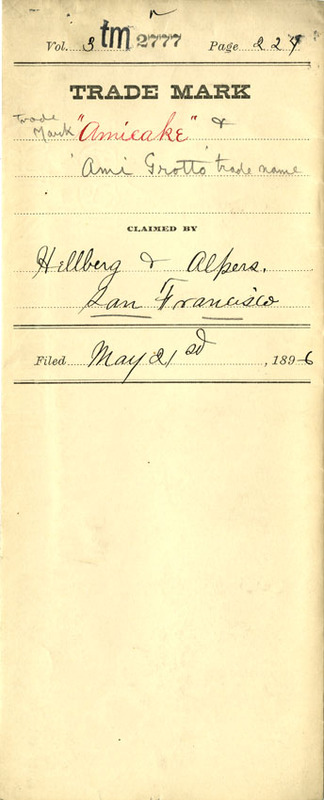 Vol. 3 tm 2777 Page 229
TRADE MARK
Trade
Mark "Amicake" &
'Ami Grotto' trade name
CLAIMED BY
Hellberg & Alpers.
San Francisco
Filed May 21sd, 1896